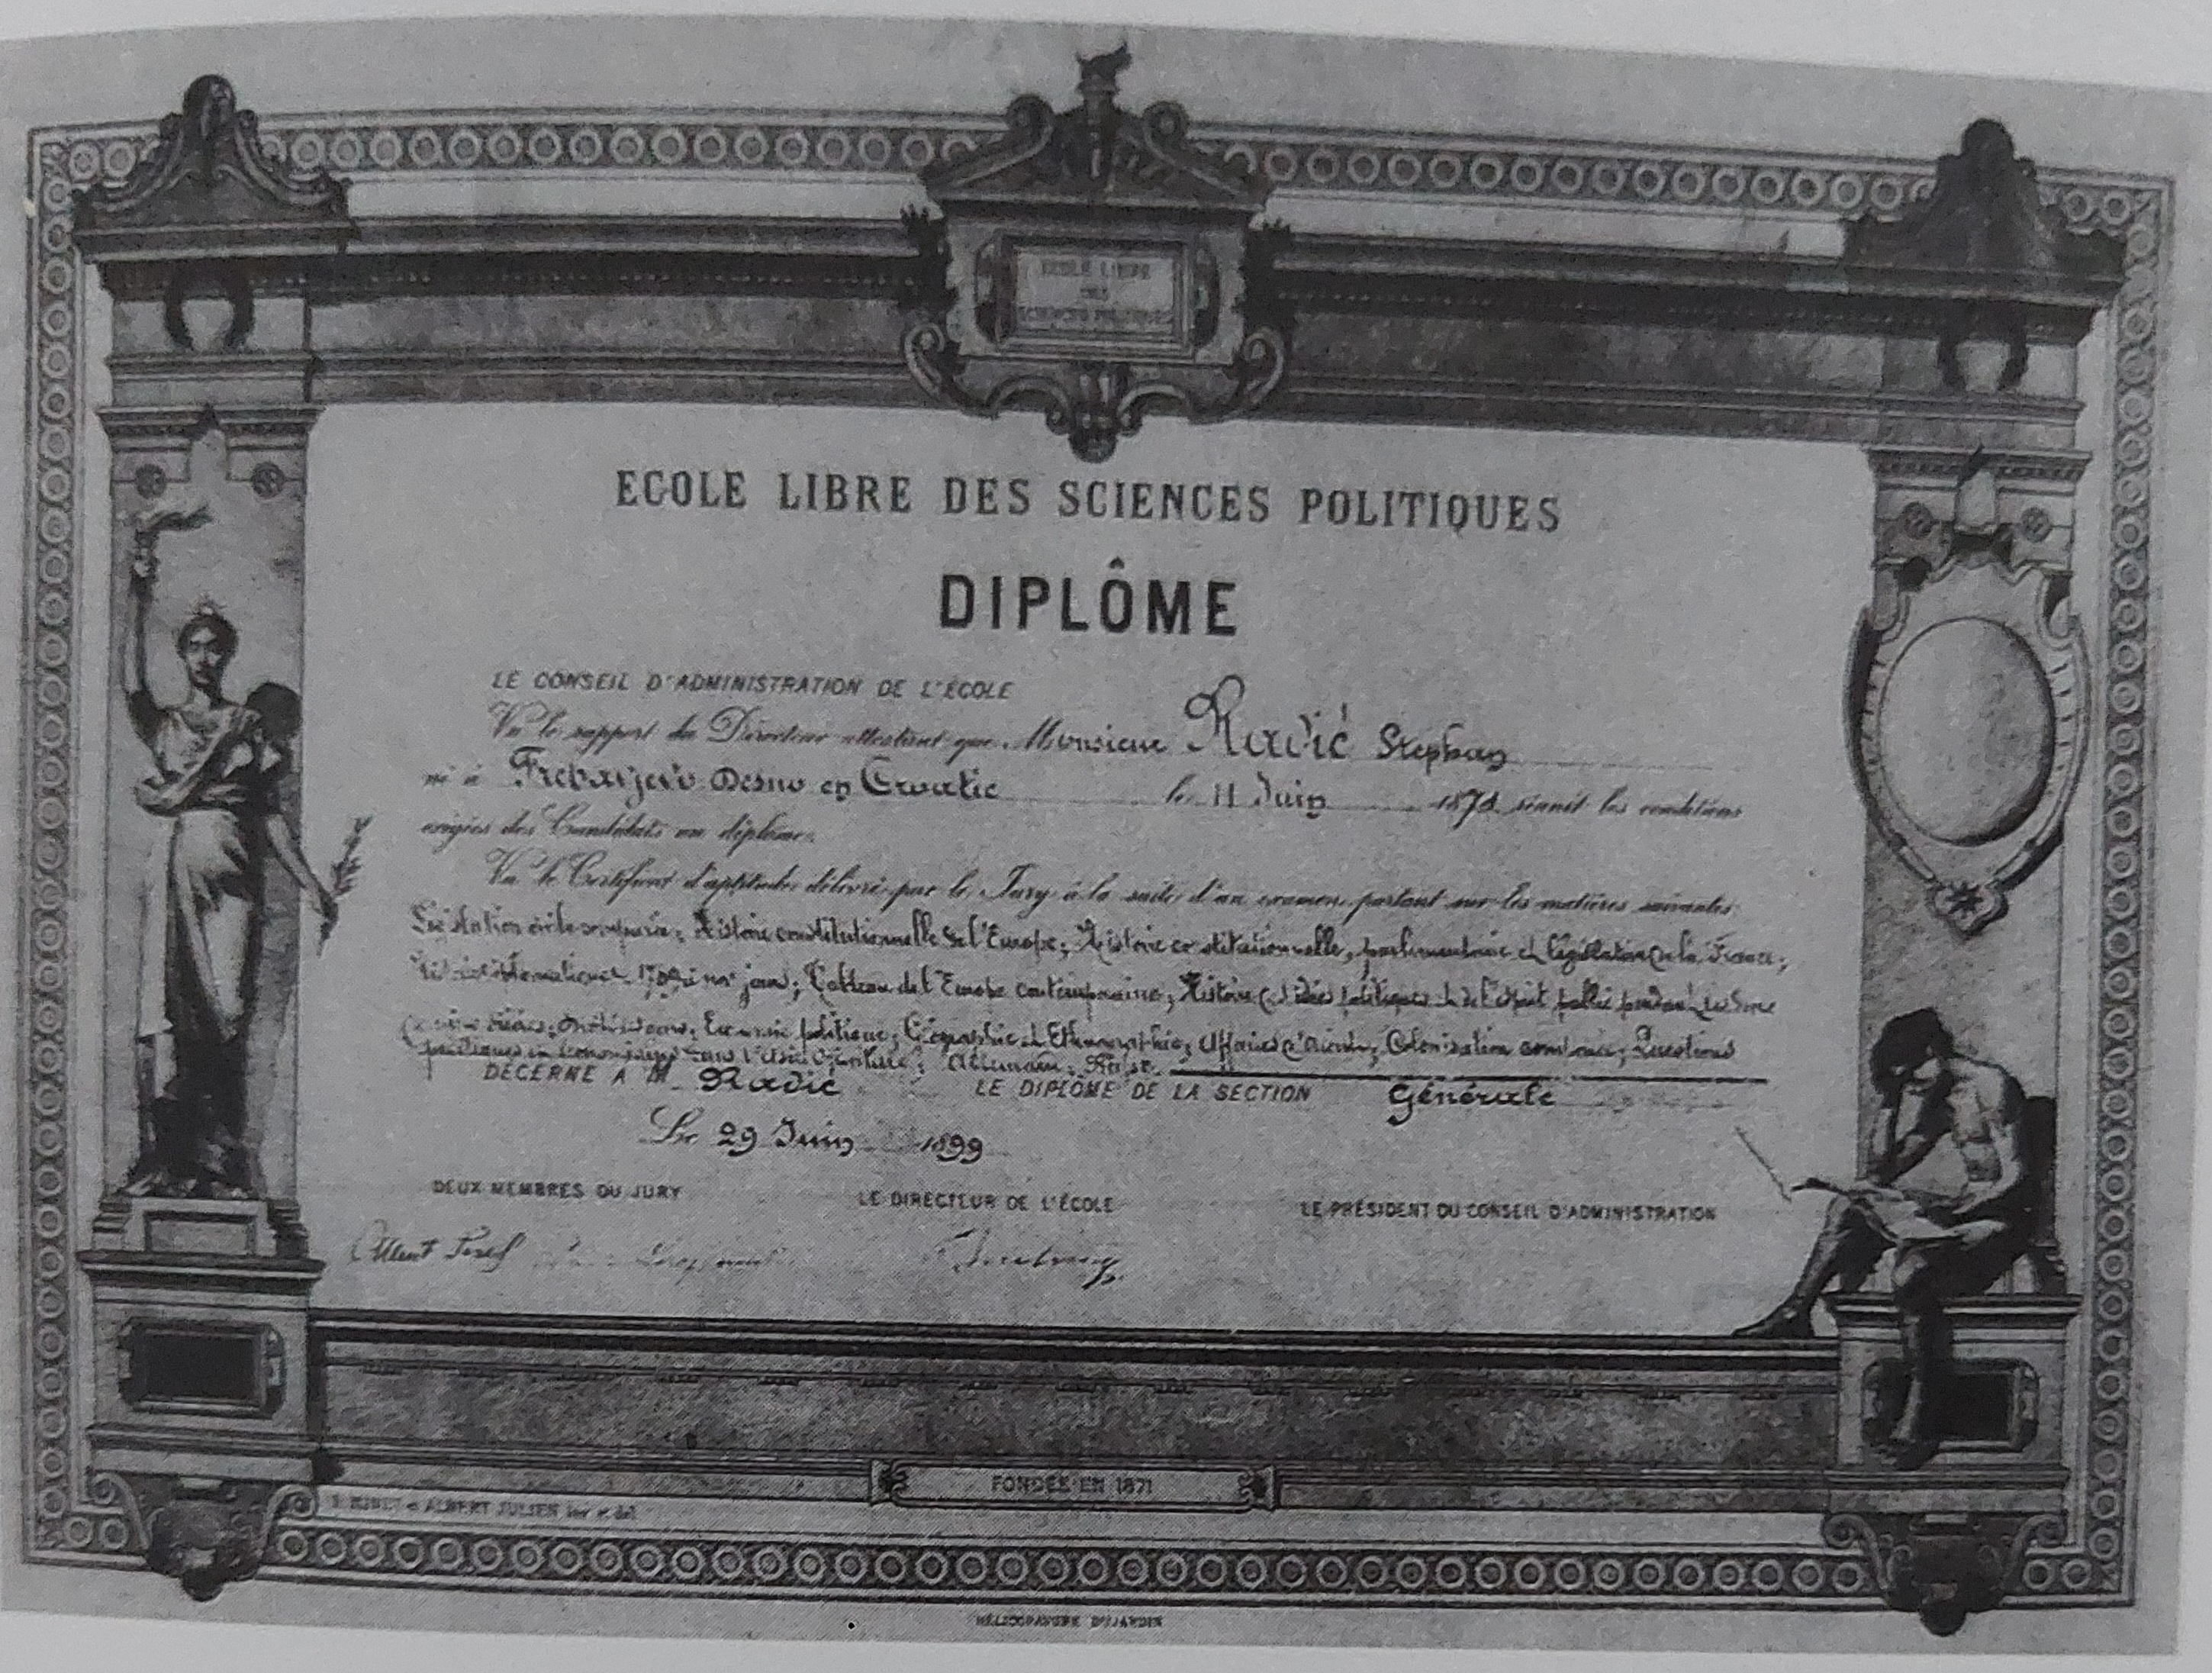 ECOLE LIBRE
DES
SCIENCES POLITIQUES
ECOLE LIBRE DES SCIENCES POLITIQUES
DIPLÔME
LE CONSEIL D'ADMINISTRATION DE L'ÉCOLE
Vu le rapport du Directeur attestant que Monsieur Radić Stephan
né à Trebarjevo Desno en Croatie le 11 Juin 1871 réunit les conditions
exigées des Candidats au diplôme.
Vu le Certificat d'aptitude délivré par le Jury à la suite d'un examen portant sur les matières suivantes
Législation civile comparée; Histoire constitutionnelle de l'Europe; Histoire constitutionnelle, parlementaire et législative de la France;
nos jours; Tableau de l'Europe contemporaine; Histoire des idées politiques et de l'esprit public pendant les
Economie politique; Géographie et Ethnographie; Affaires d'Orient; Colonisation comparée; Questions
politiques et économiques dans l'Asie Orientale; Allemand; Russe.
DÉCERNE A M. Radić LE DIPLÔME DE LA SECTION Générale
Le 29 Juin 1899
DEUX MEMBRES DU JURY LE DIRECTEUR DE L'ÉCOLE LE PRÉSIDENT DU CONSEIL D'ADMINISTRATION
Albert Sorel
FONDÉE EN 1871
ALBERT JULIEN
HÉLIOGRAVURE DUJARDIN